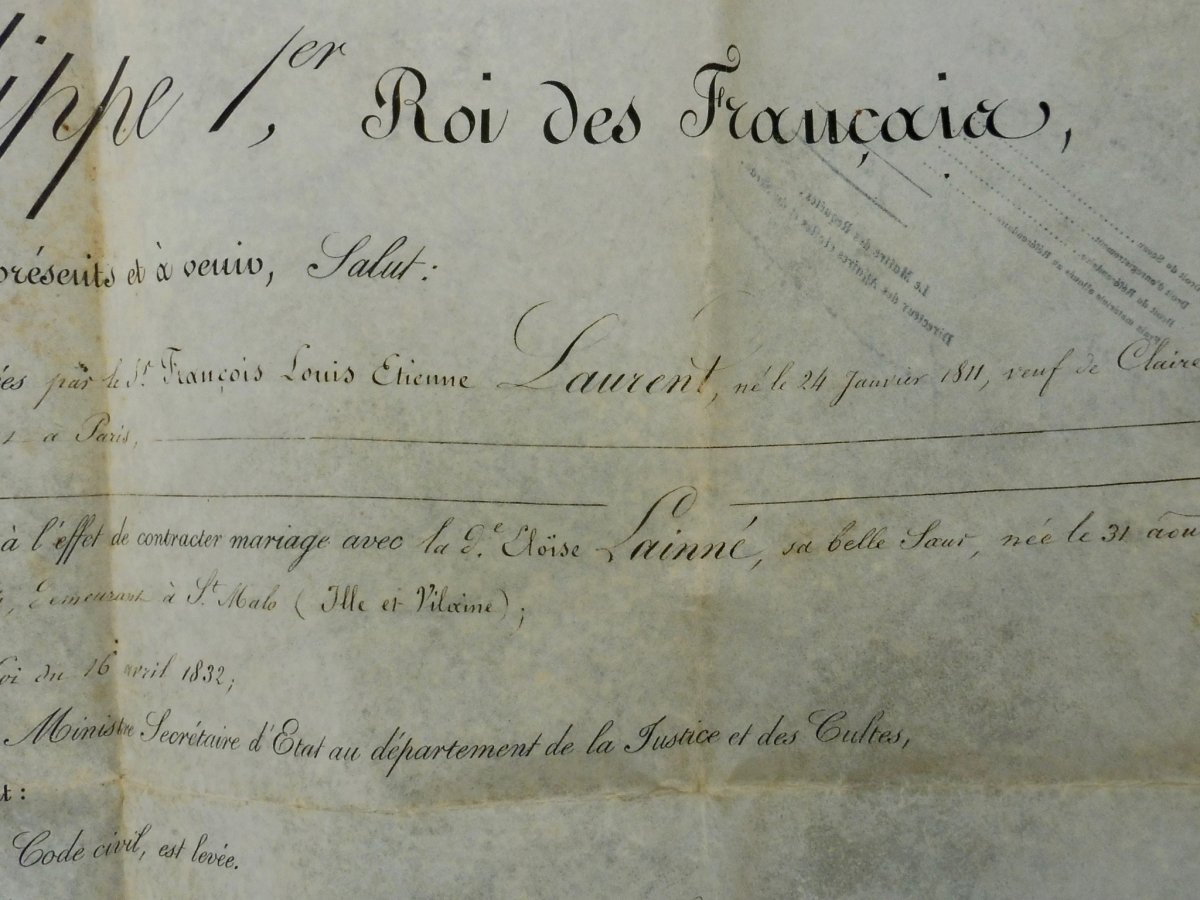 lippe 1er, Roi des Français,
présents et à venir, Salut:
ées par le Sr. François Louis Etienne Laurent, né le 24 Janvier 1811, veuf de Claire
à Paris,
à l'effet de contracter mariage avec la d.e Eloïse Lainné, sa belle Sœur, née le 31 aou
demeurant à St. Malo (Ille et Vilaine);
loi du 16 avril 1832;
Ministre Secrétaire d'Etat au département de la Justice et des Cultes,
t:
Code civil, est levée.
Le Maître des Requêtes,
Directeur des Affaires civiles et du Sceau
Droit de Sceau
Droit d'enregistrement
Droit de Référendaire